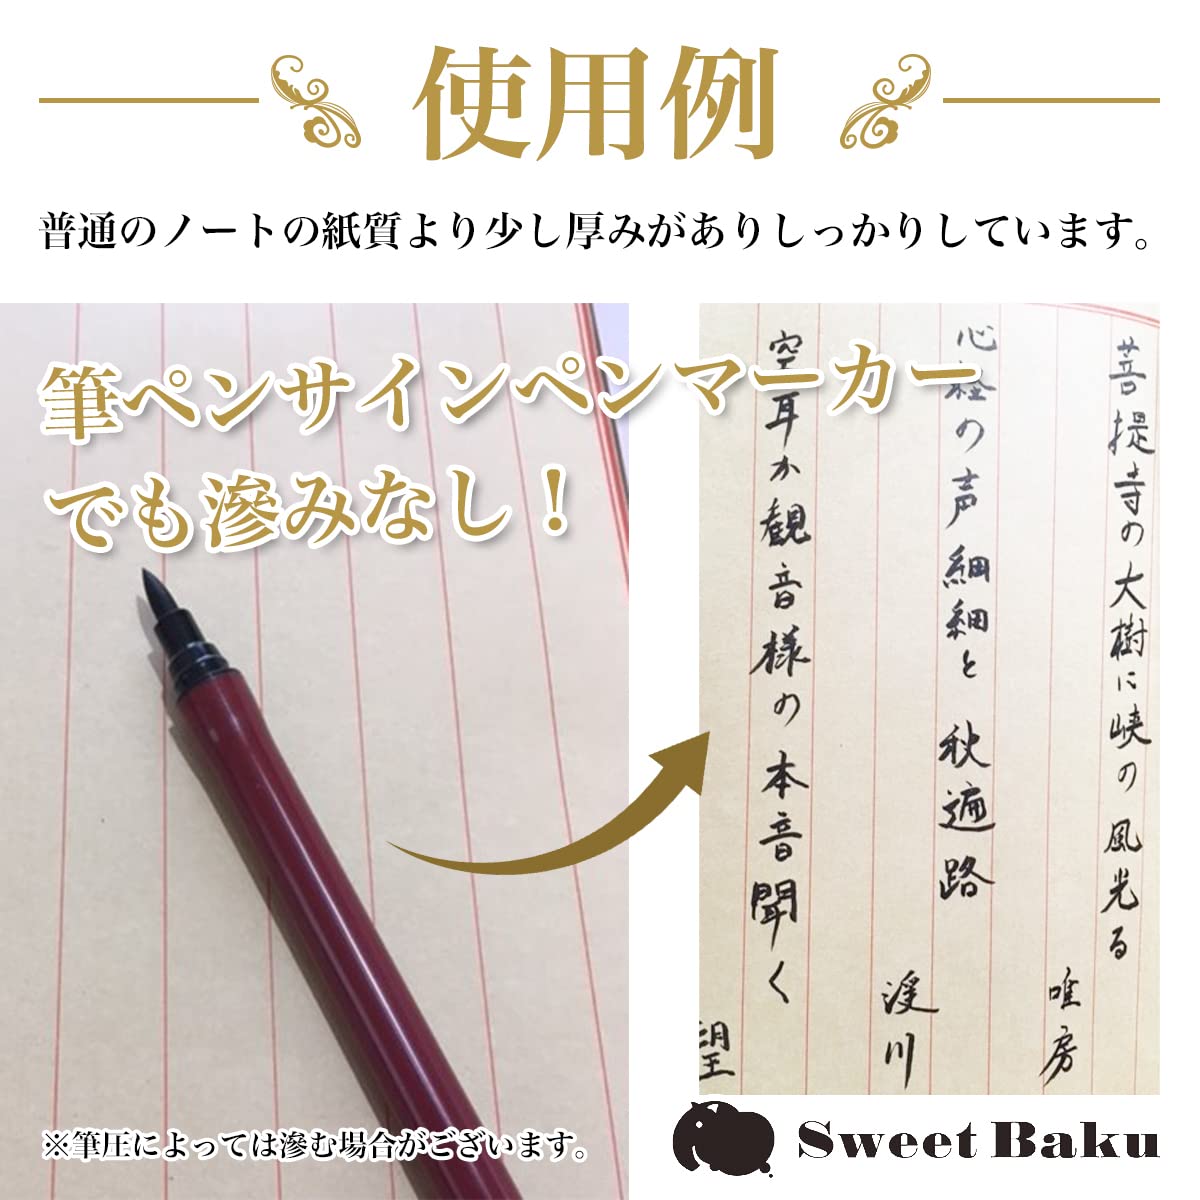 使用例
普通のノートの紙質より少し厚みがありしっかりしています。
筆ペンサインペンマーカー
でも滲みなし！
菩提寺の大樹に峡の風光る
唯房
心経の声細細と秋遍路
渓川
空耳か観音様の本音聞く
望
※筆圧によっては滲む場合がございます。
Sweet Baku